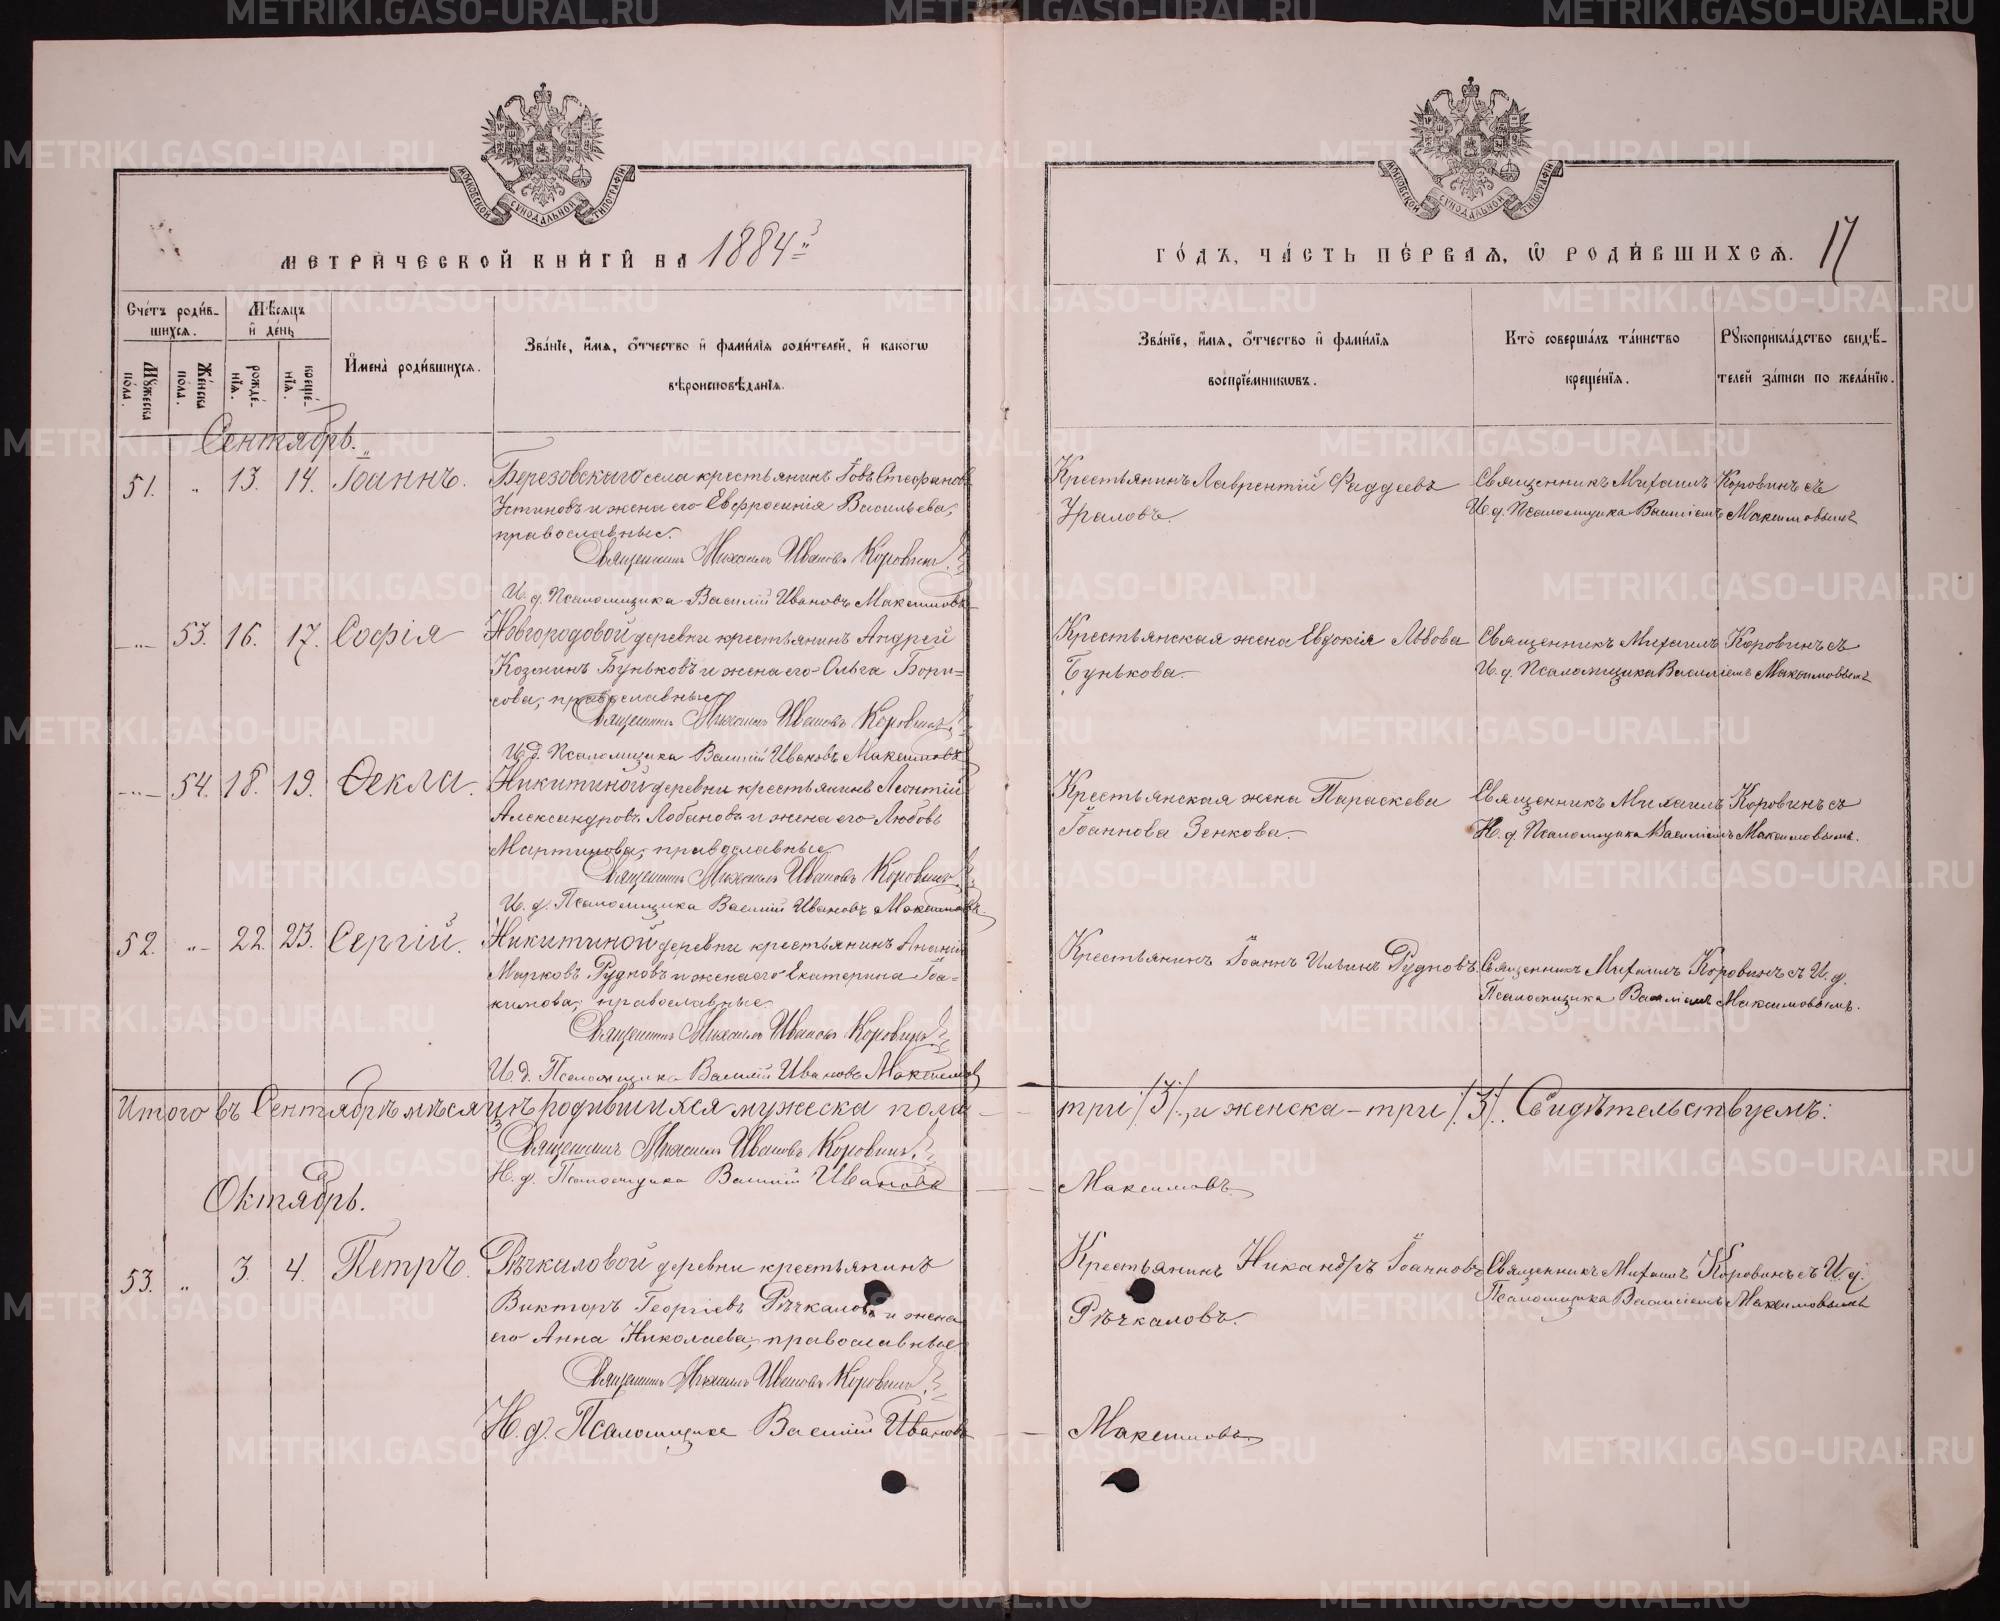 МОСКОВСКОЙ СУНОДАЛЬНОЙ ТИПОГРАФІИ
МЕТРИЧЕСКОЙ КНИГИ НА 1884й
Счетъ родившихся.
Мужеска пола.
Женска пола.
Мѣсяцъ и день
рожденія.
крещенія.
Имена родившихся.
Званіе, имя, отчество и фамилія родителей, и какогѡ
вѣроисповѣданія.
Сентябрь.
51. " 13. 14. Іоаннъ.
Березовскаго села крестьянинъ Іовъ Стефановъ
Устиновъ и жена его Евфросинія Васильева,
православные.
Священникъ Михаилъ Ивановъ Коровинъ.
И. д. Псаломщика Василій Ивановъ Максимовъ
—"— 53. 16. 17. Софія
Новгородовой деревни крестьянинъ Андрей
Козминъ Буньковъ и жена его Ольга Бори=
сова, православные
Священникъ Михаилъ Ивановъ Коровинъ.
И. д. Псаломщика Василій Ивановъ Максимовъ
—"— 54. 18. 19. Ѳекла.
Никитиной деревни крестьянинъ Леонтій
Александровъ Лобановъ и жена его Любовь
Мартинова, православные
Священникъ Михаилъ Ивановъ Коровинъ
И. д. Псаломщика Василій Ивановъ Максимовъ.
52. "— 22. 23. Сергій.
Никитиной деревни крестьянинъ Ананій
Марковъ Рудновъ и жена его Екатерина Іоа-
кимова, православные
Священникъ Михаилъ Ивановъ Коровинъ
И. д. Псаломщика Василій Ивановъ Максимовъ
Итого въ Сентябрѣ мѣсяцѣ родившихся мужеска пола —
Священникъ Михаилъ Ивановъ Коровинъ.
И. д. Псаломщика Василій Ивановъ
Октябрь.
53. " 3. 4. Петръ.
Рѣчкаловой деревни крестьянинъ
Викторъ Георгіевъ Рѣчкаловъ и жена
его Анна Николаева, православные
Священникъ Михаилъ Ивановъ Коровинъ.
И. д. Псаломщика Василій Ивановъ
МОСКОВСКОЙ СУНОДАЛЬНОЙ ТИПОГРАФІИ
ГОДЪ, ЧАСТЬ ПЕРВАЯ, Ѡ РОДИВШИХСЯ. 17
Званіе, имя, отчество и фамилія
воспріемниковъ.
Кто совершалъ таинство
крещенія.
Рукоприкладство свидѣ-
телей записи по желанію.
Крестьянинъ Лаврентій Фаддеевъ
Ураловъ.
Священникъ Михаилъ Коровинъ съ
И. д. Псаломщика Василіемъ Максимовымъ
Крестьянская жена Евдокія Львова
Бунькова.
Священникъ Михаилъ Коровинъ съ
И. д. Псаломщика Василіемъ Максимовымъ
Крестьянская жена Параскева
Іоаннова Зенкова.
Священникъ Михаилъ Коровинъ съ
И. д. Псаломщика Василіемъ Максимовымъ.
Крестьянинъ Іоаннъ Ильинъ Рудновъ.
Священникъ Михаилъ Коровинъ съ И. д.
Псаломщика Василіемъ Максимовымъ.
три /3/., и женска — три /3/. Свидѣтельствуемъ:
Максимовъ.
Крестьянинъ Никандръ Іоанновъ
Рѣчкаловъ.
Священникъ Михаилъ Коровинъ съ И. д.
Псаломщика Василіемъ Максимовымъ
Максимовъ.
METRIKI.GASO-URAL.RU